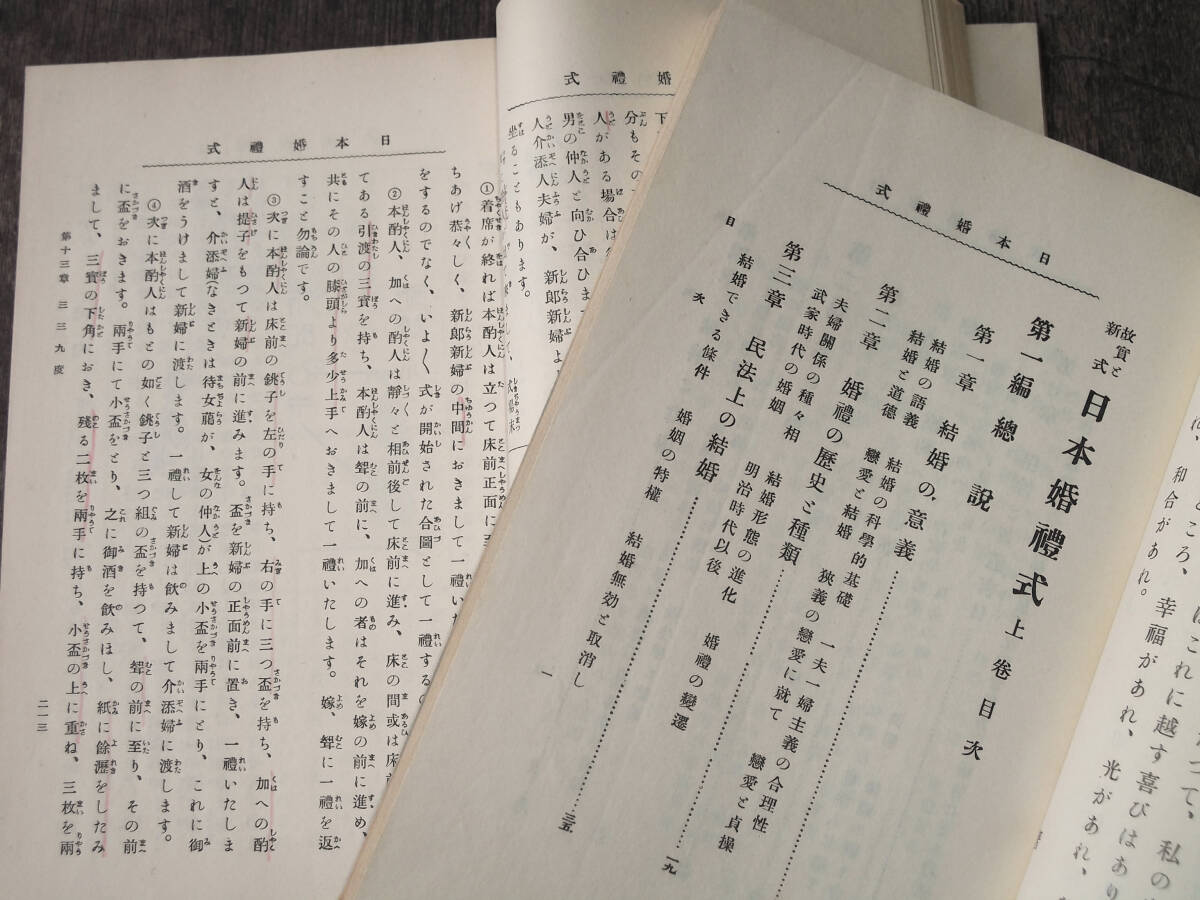 日本婚禮式
故實と新式 日本婚禮式 上卷目次
第一編 總說
第一章 結婚の意義
結婚の語義 結婚の科學的基礎 一夫一婦主義の合理性
結婚と道德 戀愛と結婚 狹義の戀愛に就て 戀愛と貞操
第二章 婚禮の歷史と種類 一九
夫婦關係の種々相 結婚形態の進化 婚禮の變遷
武家時代の婚姻 明治時代以後
第三章 民法上の結婚 三五
結婚できる條件 婚姻の特權 結婚無効と取消し
目次 一
ころ、はこれに越す喜びはあり
和合があれ。幸福があれ、光があれ、
婚禮式
人がある場合は
男の仲人と向ひ合ひま
人介添人夫婦が、新郎新婦よ
坐ることもあります。
日本婚禮式
①着席が終れば本酌人は立つて床前正面に至
ちあげ恭々しく、新郎新婦の中間におきまして一禮いた
をするのでなく、いよ〱式が開始された合圖として一禮する
②本酌人、加への酌人は靜々と相前後して床前に進み、床の間或は床前
てある引渡の三寶を持ち、本酌人は聟の前に、加への者はそれを嫁の前に進め、
共にその人の膝頭より多少上手へおきまして一禮いたします。嫁、聟に一禮を返
すこと勿論です。
③次に本酌人は床前の銚子を左の手に持ち、右の手に三つ盃を持ち、加への酌
人は提子をもつて新婦の前に進みます。盃を新婦の正面前に置き、一禮いたしま
すと、介添婦(なきときは待女﨟が、女の仲人)が上の小盃を兩手にとり、これに御
酒をうけまして新婦に渡します。一禮して新婦は飮みまして介添婦に渡します。
④次に本酌人はもとの如く銚子と三つ組の盃を持つて、聟の前に至り、その前
に盃をおきます。兩手にて小盃をとり、之に御酒を飮みほし、紙に餘瀝をしたみ
まして、三寶の下角におき、殘る二枚を兩手に持ち、小盃の上に重ね、三枚を兩
第十三章 三三九度 二一三